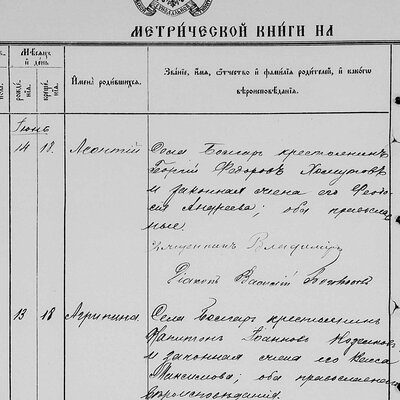 МЕТРИ́ЧЕСКОЙ КНИ́ГИ НА
Мѣсяцъ и день
рожде́нія.
креще́нія.
Имена̀ роди́вшихся.
Зва́ніе, и́мя, о́тчество и фами́лія роди́телей, и како́го
вѣроисповѣ́данія.
Іюнь
14 18. Леонтій Села Болгаръ крестьянинъ
Георгій Ѳедоровъ
и законная жена его Ѳеодо-
сія Андреева; оба православ-
ные.
Священникъ Владиміръ
Діаконъ Василій
13 18 Агрипина Села Болгаръ крестьянинъ
Іоанновъ
и законная жена его
Максимова; оба православнаго
вѣроисповѣданія.